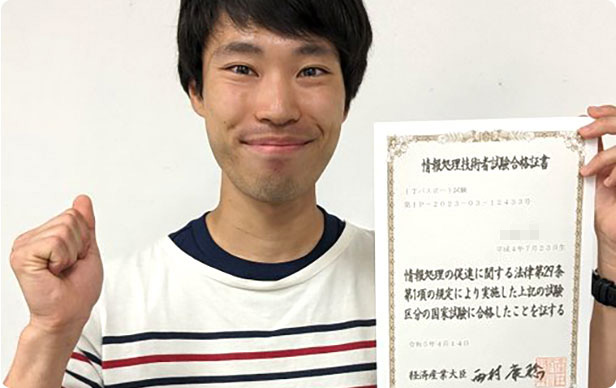 情報処理技術者試験合格証書
ITパスポート試験
第IP-2023-03-12433号
平成4年7月23日生
情報処理の促進に関する法律第29条
第1項の規定により実施した上記の試験
区分の国家試験に合格したことを証する
令和5年4月14日
経済産業大臣 西村康稔